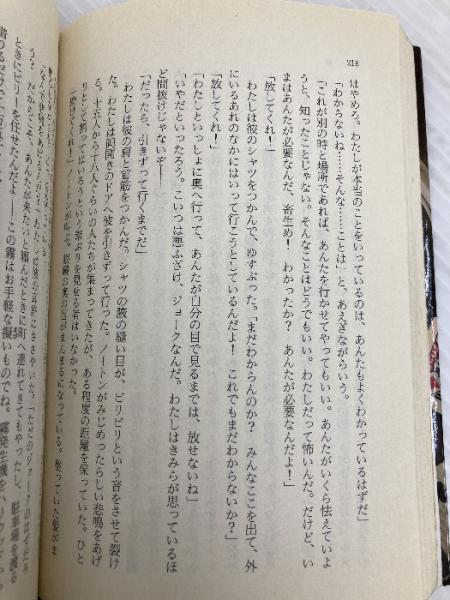 216
はやめろ。わたしが本当のことをいっているのは、あんたもよくわかっているはずだ」
「わからないね……そんな……ことは」と、あえぎながらいう。
「これが別の時と場所であれば、あんたを行かせてやってもいい。あんたがいくら怯えていよ
うと、知ったことじゃない。そんなことはどうでもいい。わたしだって怖いんだ。だけど、い
まはあんたが必要なんだ、畜生め！　わかったか？　あんたが必要なんだよ！」
「放してくれ！」
わたしは彼のシャツをつかんで、ゆすぶった。「まだわからんのか？　みんなここを出て、外
にいるあれのなかにはいって行こうとしているんだよ！　これでもまだわからないか？」
「放してくれ！」
「わたしといっしょに奥へ行って、あんたが自分の目で見るまでは、放せないね」
「いやだといったろう。こいつは悪ふざけ、ジョークなんだ。わたしはきみらが思っているほ
ど間抜けじゃない――」
「だったら、引きずって行くまでだ」
わたしは彼の肩と首筋をつかんだ。シャツの腋の縫い目が、ビリビリという音をさせて裂け
た。わたしは両開きのドアへ彼を引きずって行った。ノートンがみじめったらしい悲鳴をあげ
る。十五人から十八人ぐらいの人たちが集まってきたが、ある程度の距離を保っていた。ひと
りとして割ってはいろうという素ぶりを見せる者はいなかった。
ときにビリーを任せたんだよ――この霧はお手軽な擬いものでね。霧発生機を